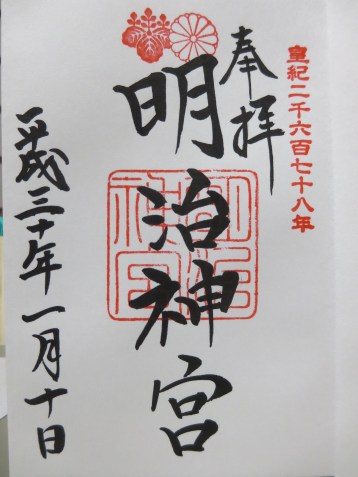 皇紀二千六百七十八年
奉拝
明治神宮
明治神宮
平成三十年一月十日